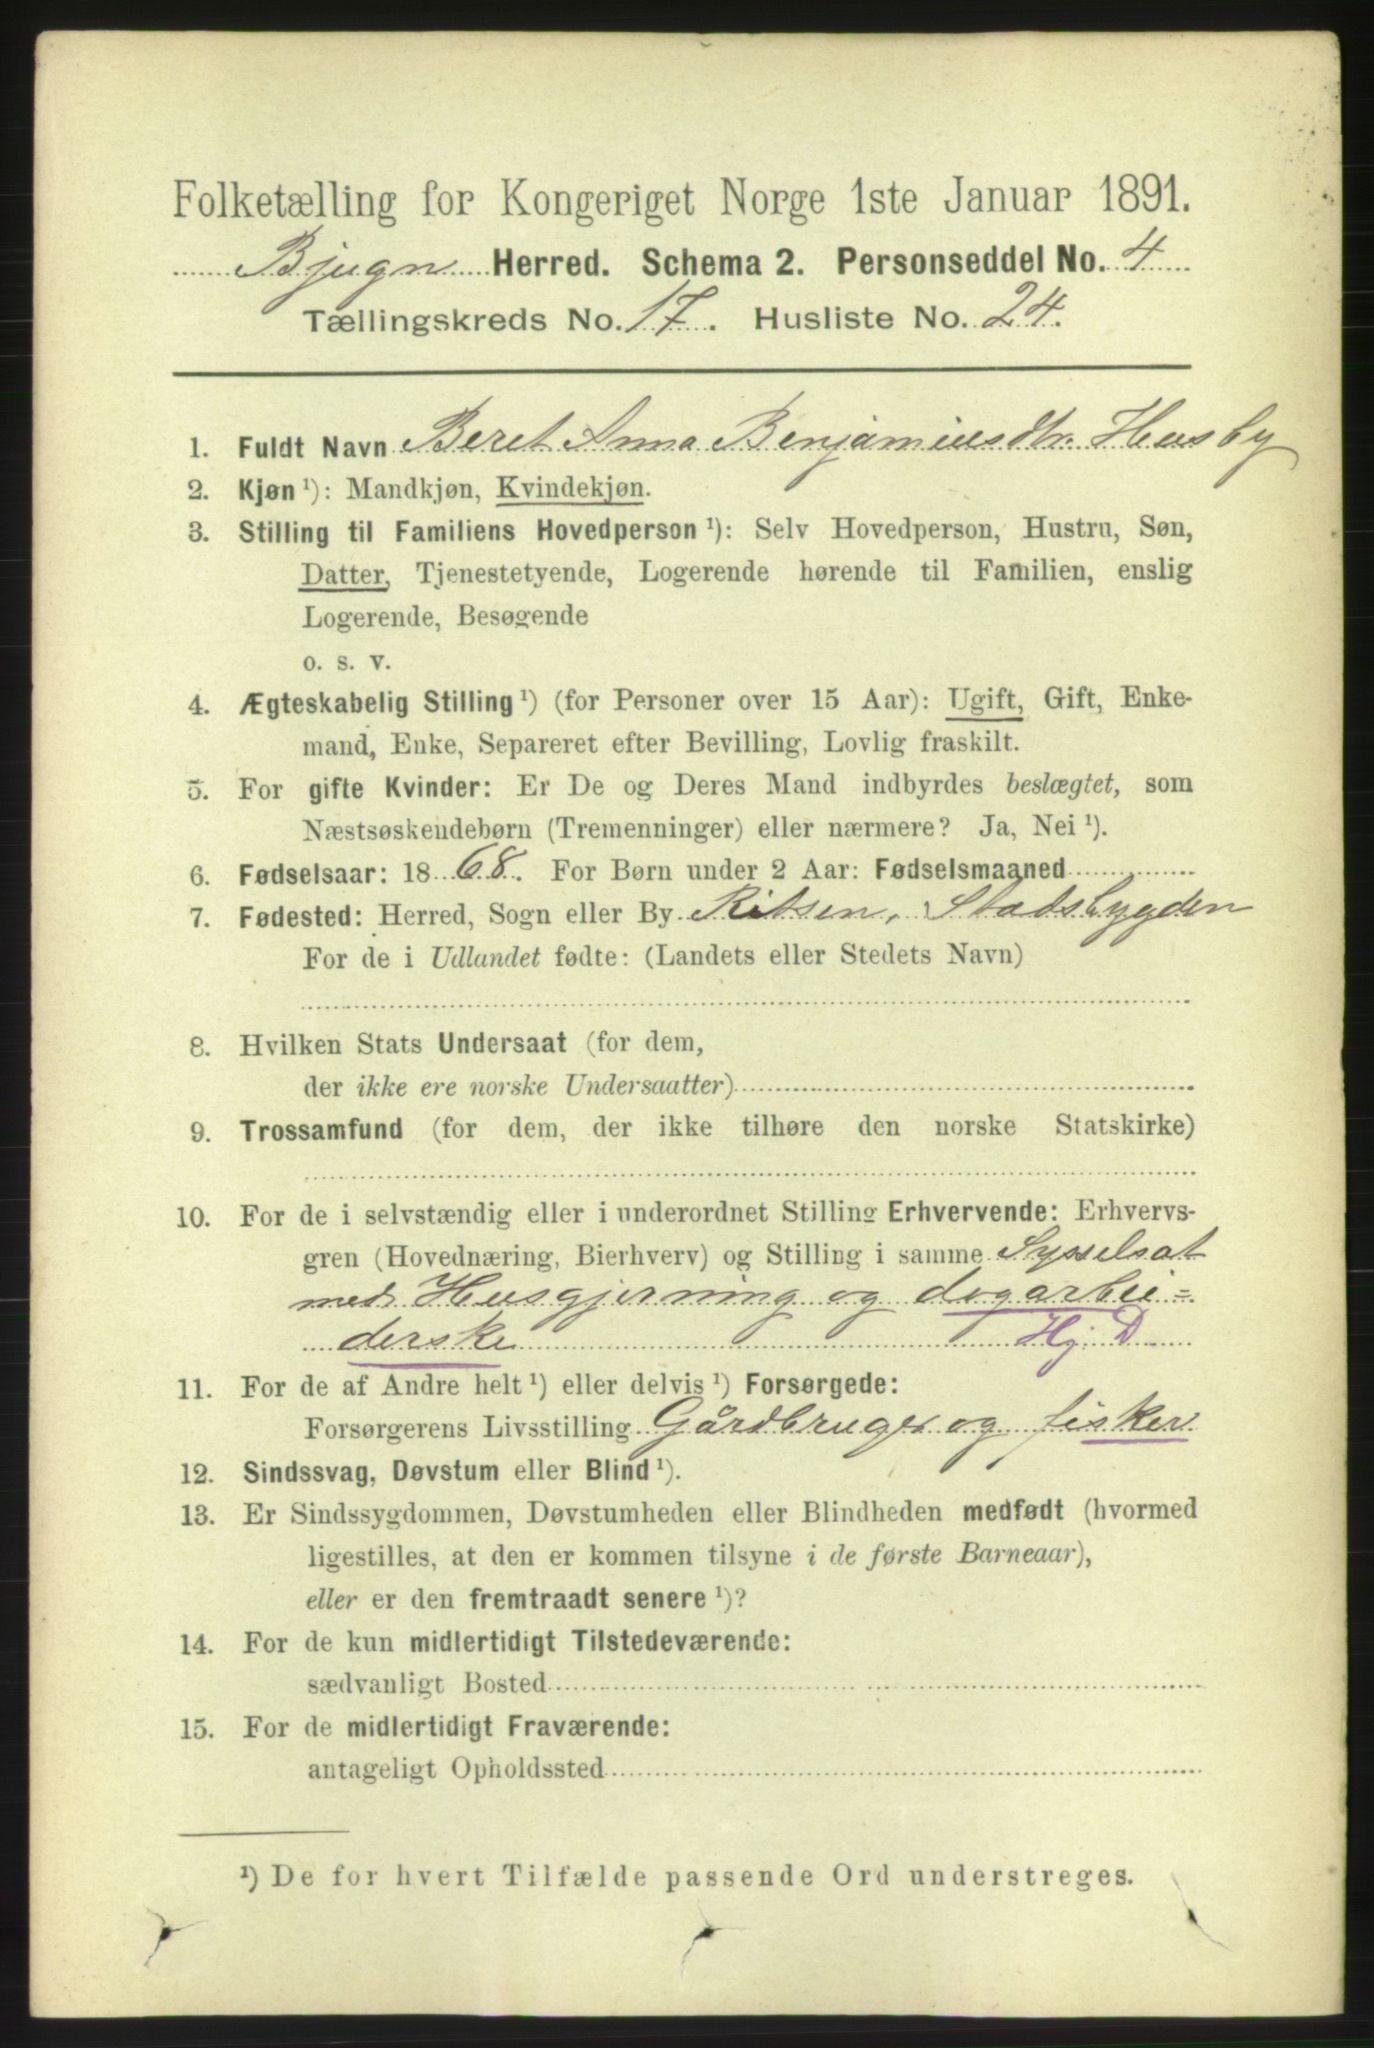 Folketælling for Kongeriget Norge 1ste Januar 1891.
Bjugn Herred. Schema 2. Personseddel No. 4
Tællingskreds No. 17. Husliste No. 24.
1. Fuldt Navn Beret Anna Benjaminsdtr. Husby
2. Kjøn ¹): Mandkjøn, Kvindekjøn.
3. Stilling til Familiens Hovedperson ¹): Selv Hovedperson, Hustru, Søn,
Datter, Tjenestetyende, Logerende hørende til Familien, enslig
Logerende, Besøgende
o. s. v.
4. Ægteskabelig Stilling ¹) (for Personer over 15 Aar): Ugift, Gift, Enke-
mand, Enke, Separeret efter Bevilling, Lovlig fraskilt.
5. For gifte Kvinder: Er De og Deres Mand indbyrdes beslægtet, som
Næstsøskendebørn (Tremenninger) eller nærmere? Ja, Nei ¹).
6. Fødselsaar: 1868. For Børn under 2 Aar: Fødselsmaaned
7. Fødested: Herred, Sogn eller By Ritsen, Stadsbygden
For de i Udlandet fødte: (Landets eller Stedets Navn)
8. Hvilken Stats Undersaat (for dem,
der ikke ere norske Undersaatter)
9. Trossamfund (for dem, der ikke tilhøre den norske Statskirke)
10. For de i selvstændig eller i underordnet Stilling Erhvervende: Erhvervs-
gren (Hovednæring, Bierhverv) og Stilling i samme Sysselsat
med Husgjerning og dagarbei=
derske Hj. D
11. For de af Andre helt ¹) eller delvis ¹) Forsørgede:
Forsørgerens Livsstilling Gårdbruger og fisker
12. Sindssvag, Døvstum eller Blind ¹).
13. Er Sindssygdommen, Døvstumheden eller Blindheden medfødt (hvormed
ligestilles, at den er kommen tilsyne i de første Barneaar),
eller er den fremtraadt senere ¹)?
14. For de kun midlertidigt Tilstedeværende:
sædvanligt Bosted
15. For de midlertidigt Fraværende:
antageligt Opholdssted
¹) De for hvert Tilfælde passende Ord understreges.